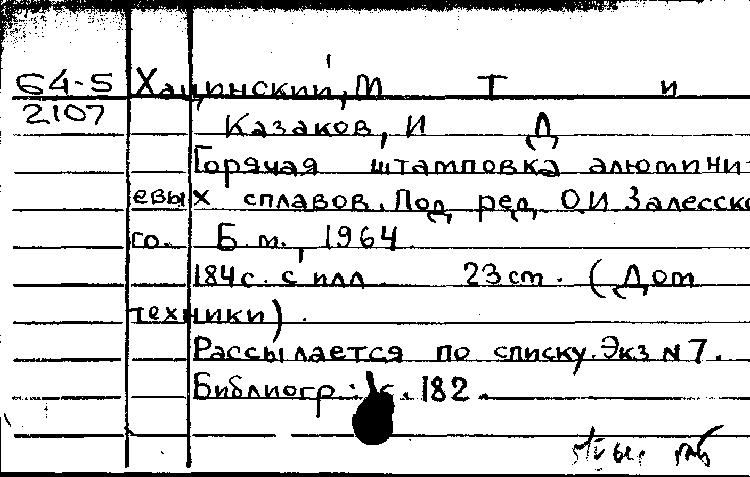 64-5 Хацинский, М Т и
2107
Казаков, И Д
Горячая штамповка алюмини-
евых сплавов. Под ред. О.И Залесско
го. Б.м., 1964.
184с. с илл. 23см. (Дом
техники).
Рассылается по списку. Экз N 7.
Библиогр.: с. 182.